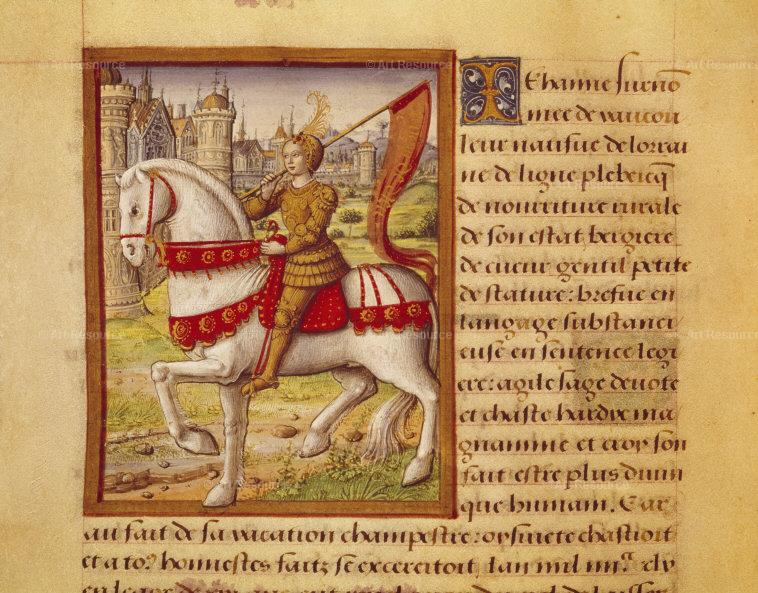 Iehanne surnõ
mee de vaucou
leur natifue de lorrai
ne de ligne plebeicq
de nourriture rurale
de son estat bergiere
de cueur gentil petite
de stature: brefue en
langage substanci
euse en sentence legi
ere: agile sage deuote
et chaste hardie ma
gnanime et croy son
fait estre plus diuin
que humain. Car
au fait de sa vacation champestre: oysiuete chastioit
et a to⁹ honnestes faitz se excercitoit. Lan mil
© Art Resource